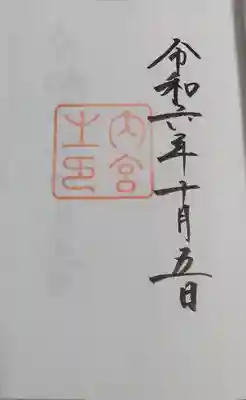 令和六年十月五日
内宮之印